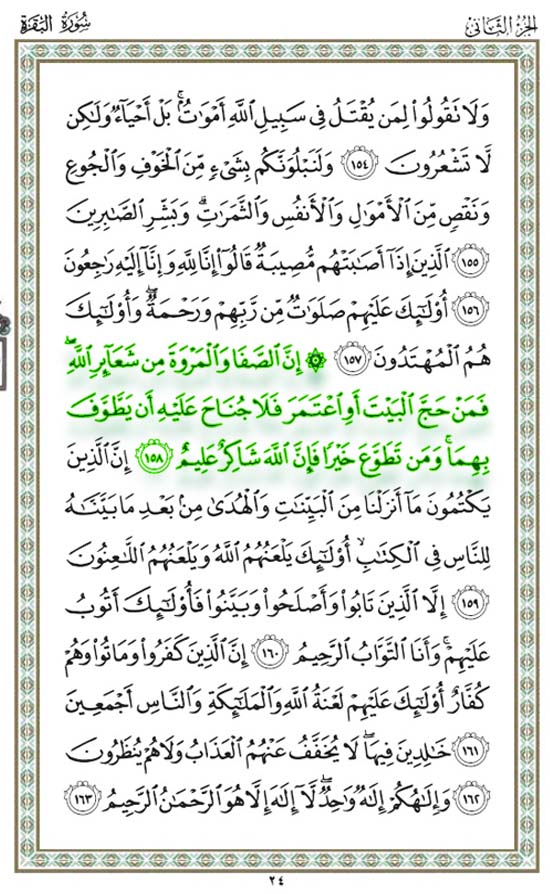 سُورَةُ البَقَرَةِ
الجزء الثاني
وَلَا تَقُولُوا۟ لِمَن يُقْتَلُ فِى سَبِيلِ ٱللَّهِ أَمْوَٰتٌۢ ۚ بَلْ أَحْيَآءٌ وَلَٰكِن
لَّا تَشْعُرُونَ ١٥٤ وَلَنَبْلُوَنَّكُم بِشَىْءٍ مِّنَ ٱلْخَوْفِ وَٱلْجُوعِ
وَنَقْصٍ مِّنَ ٱلْأَمْوَٰلِ وَٱلْأَنفُسِ وَٱلثَّمَرَٰتِ ۗ وَبَشِّرِ ٱلصَّٰبِرِينَ
١٥٥ ٱلَّذِينَ إِذَآ أَصَٰبَتْهُم مُّصِيبَةٌ قَالُوٓا۟ إِنَّا لِلَّهِ وَإِنَّآ إِلَيْهِ رَٰجِعُونَ
١٥٦ أُو۟لَٰٓئِكَ عَلَيْهِمْ صَلَوَٰتٌ مِّن رَّبِّهِمْ وَرَحْمَةٌ ۖ وَأُو۟لَٰٓئِكَ
هُمُ ٱلْمُهْتَدُونَ ١٥٧ ۞ إِنَّ ٱلصَّفَا وَٱلْمَرْوَةَ مِن شَعَآئِرِ ٱللَّهِ ۖ
فَمَنْ حَجَّ ٱلْبَيْتَ أَوِ ٱعْتَمَرَ فَلَا جُنَاحَ عَلَيْهِ أَن يَطَّوَّفَ
بِهِمَا ۚ وَمَن تَطَوَّعَ خَيْرًا فَإِنَّ ٱللَّهَ شَاكِرٌ عَلِيمٌ ١٥٨ إِنَّ ٱلَّذِينَ
يَكْتُمُونَ مَآ أَنزَلْنَا مِنَ ٱلْبَيِّنَٰتِ وَٱلْهُدَىٰ مِنۢ بَعْدِ مَا بَيَّنَّٰهُ
لِلنَّاسِ فِى ٱلْكِتَٰبِ ۙ أُو۟لَٰٓئِكَ يَلْعَنُهُمُ ٱللَّهُ وَيَلْعَنُهُمُ ٱللَّٰعِنُونَ
١٥٩ إِلَّا ٱلَّذِينَ تَابُوا۟ وَأَصْلَحُوا۟ وَبَيَّنُوا۟ فَأُو۟لَٰٓئِكَ أَتُوبُ
عَلَيْهِمْ ۚ وَأَنَا ٱلتَّوَّابُ ٱلرَّحِيمُ ١٦٠ إِنَّ ٱلَّذِينَ كَفَرُوا۟ وَمَاتُوا۟ وَهُمْ
كُفَّارٌ أُو۟لَٰٓئِكَ عَلَيْهِمْ لَعْنَةُ ٱللَّهِ وَٱلْمَلَٰٓئِكَةِ وَٱلنَّاسِ أَجْمَعِينَ
١٦١ خَٰلِدِينَ فِيهَا ۖ لَا يُخَفَّفُ عَنْهُمُ ٱلْعَذَابُ وَلَا هُمْ يُنظَرُونَ
١٦٢ وَإِلَٰهُكُمْ إِلَٰهٌ وَٰحِدٌ ۖ لَّآ إِلَٰهَ إِلَّا هُوَ ٱلرَّحْمَٰنُ ٱلرَّحِيمُ ١٦٣
٢٤